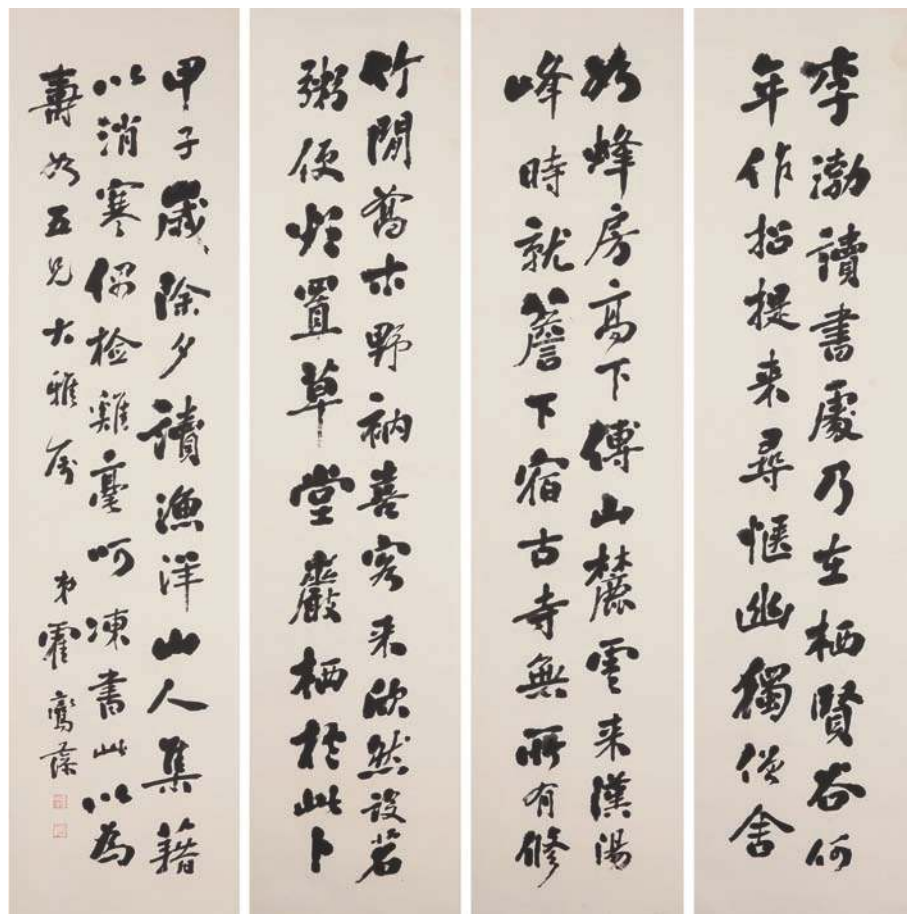 李渤讀書處乃在栖賢谷何
年作招提来尋愜幽獨僧舍
如蜂房高下傅山麓雲来漢陽
峰時就簷下宿古寺無所有修
竹閒喬木野衲喜客来欣然設茗
粥便欲置草堂巖栖於此卜
甲子歲除夕讀漁洋山人集藉
以消寒偶检雞毫呵凍書此以為
壽如五兄大雅属 弟霍鸞